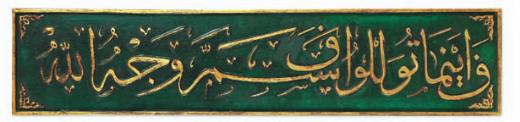 فَاَيْنَمَا تُوَلُّوا فَثَمَّ وَجْهُ اللّٰهِ